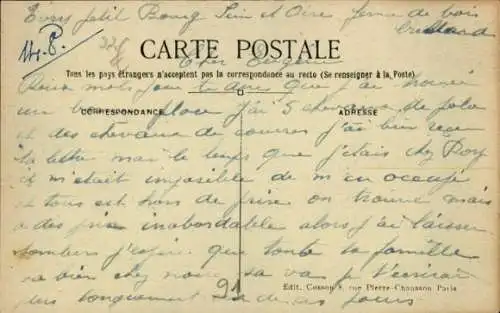 Evry petit Bourg Sein et Oise ferme de bois
Briard
Cher Eugène
CARTE POSTALE
Tous les pays étrangers n'acceptent pas la correspondance au recto (Se renseigner à la Poste)
Deux mots pour te dire que j'ai trouvé
CORRESPONDANCE
ADRESSE
un place j'ai 5 chevaux de
et des chevaux de courses j'ai bien reçu
ta lettre mai le temps que j'étais chez Roy
il m'était imposible de m en occupé
et tous est hors de prise on trouve mais
a des prix inabordable alors j'ai laisser
tombers j'espère que toute ta famille
va bien chez nous sa va je t'ecrirai
plus longuement un de ces jours
91
Edit. Cosson 8, rue Pierre-Chausson Paris